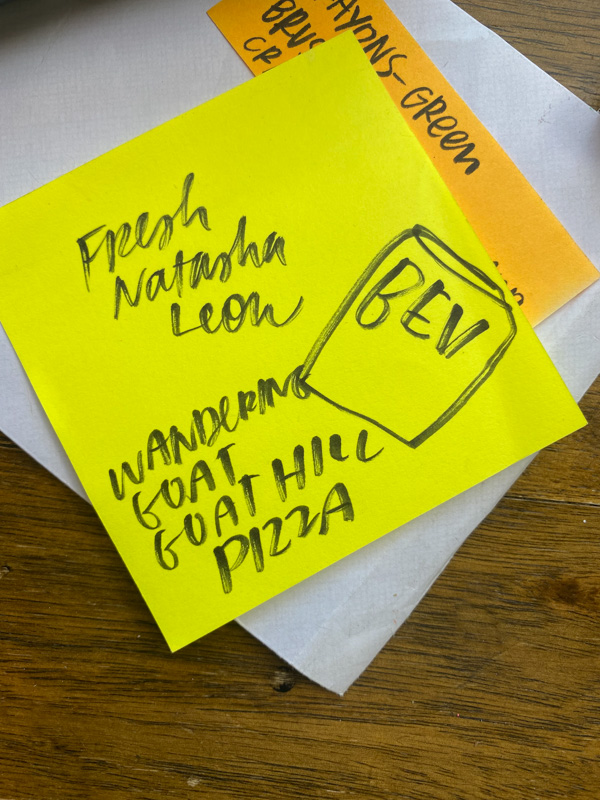 AYONS-GREEN
BRUS
CR
Fresh
Natasha
Leon
BEV
WANDERING
GOAT
GOAT HILL
PIZZA